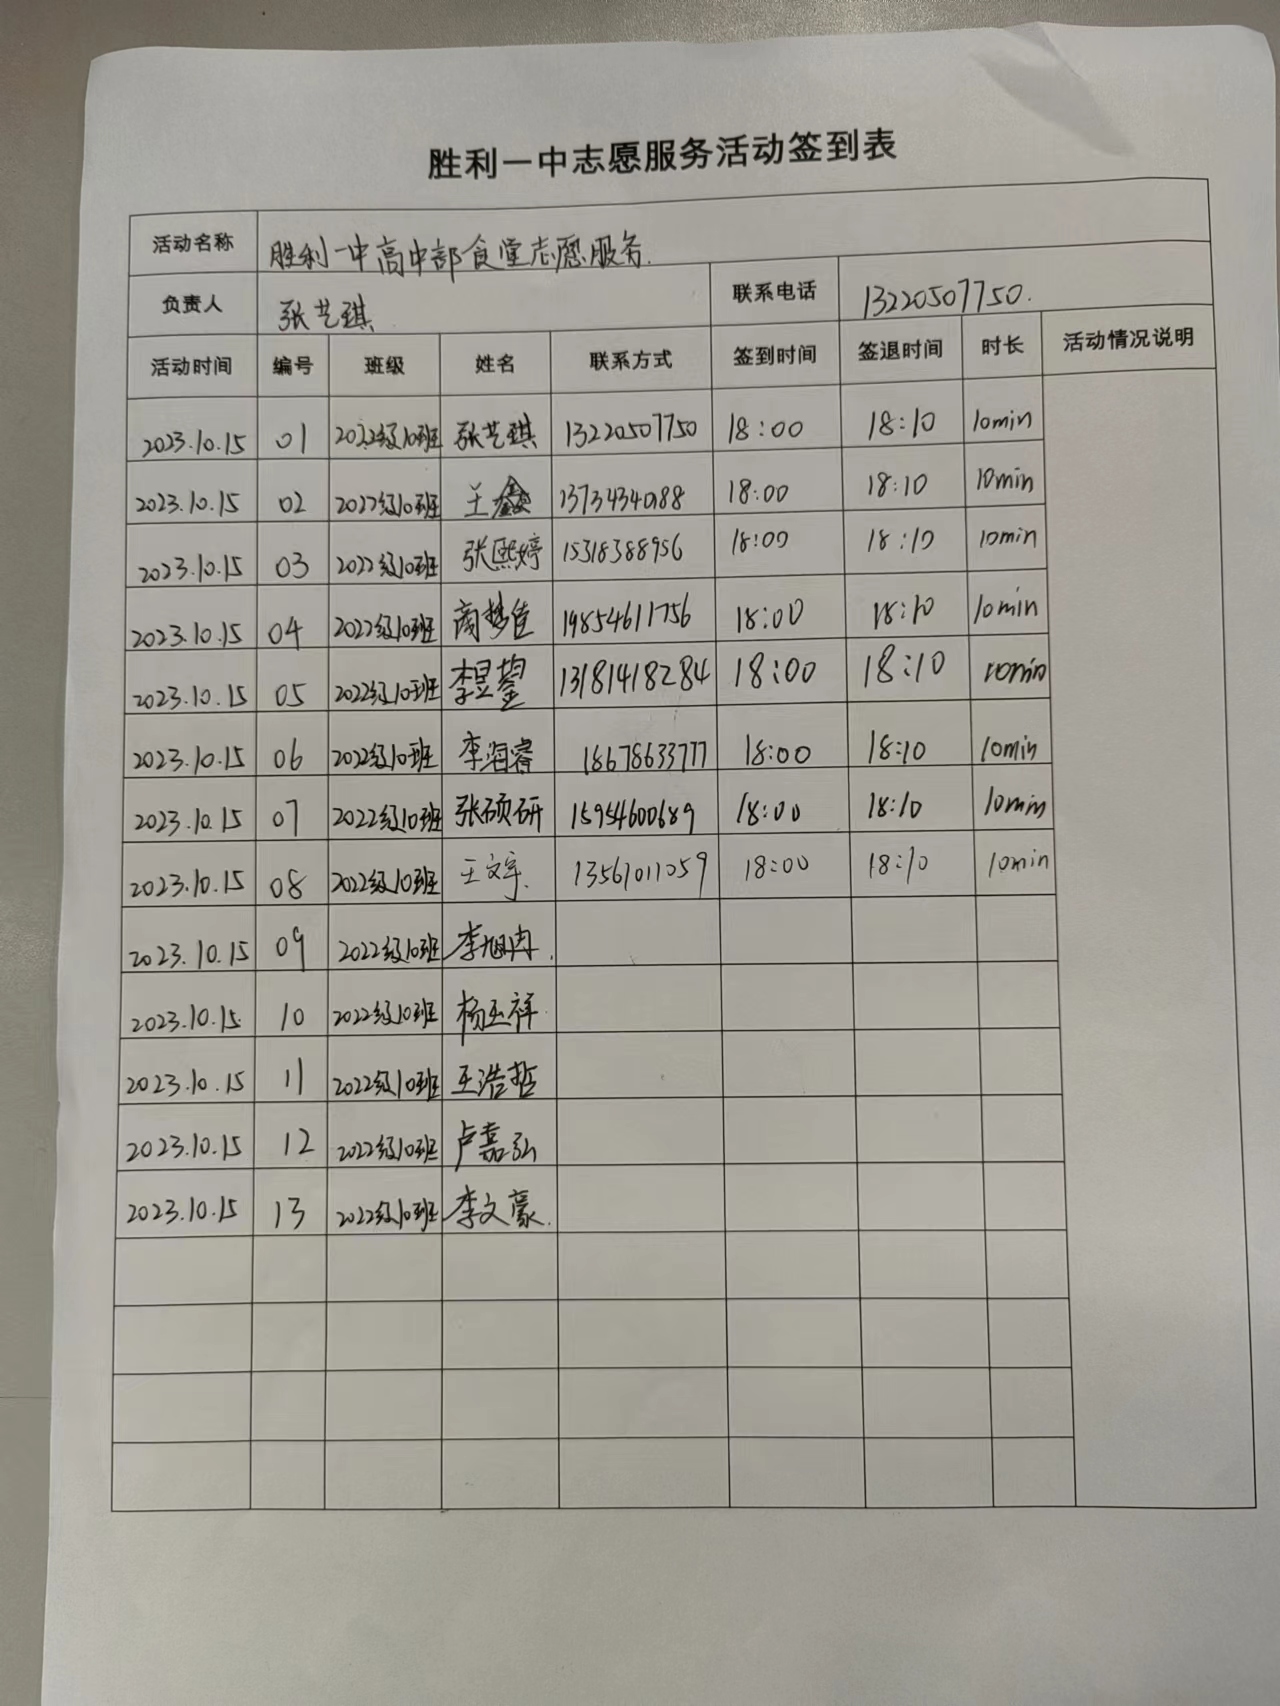 胜利一中志愿服务活动签到表
活动名称 胜利一中高中部食堂志愿服务.
负责人 张艺琪 联系电话 13220507750.
活动时间 编号 班级 姓名 联系方式 签到时间 签退时间 时长 活动情况说明
2023.10.15 01 2022级10班 张艺琪 13220507750 18:00 18:10 10min
2023.10.15 02 2022级10班 王鑫 13734340188 18:00 18:10 10min
2023.10.15 03 2022级10班 张熙婷 15318388956 18:00 18:10 10min
2023.10.15 04 2022级10班 商梦佳 19854611756 18:00 18:10 10min
2023.10.15 05 2022级10班 李昱 13181418284 18:00 18:10 10min
2023.10.15 06 2022级10班 李海睿 18678633777 18:00 18:10 10min
2023.10.15 07 2022级10班 张硕研 15954600689 18:00 18:10 10min
2023.10.15 08 2022级10班 王文宇. 13561011059 18:00 18:10 10min
2023.10.15 09 2022级10班 李旭冉.
2023.10.15. 10 2022级10班 杨玉祥
2023.10.15 11 2022级10班 王浩哲
2023.10.15 12 2022级10班 卢嘉弘
2023.10.15 13 2022级10班 李文豪.